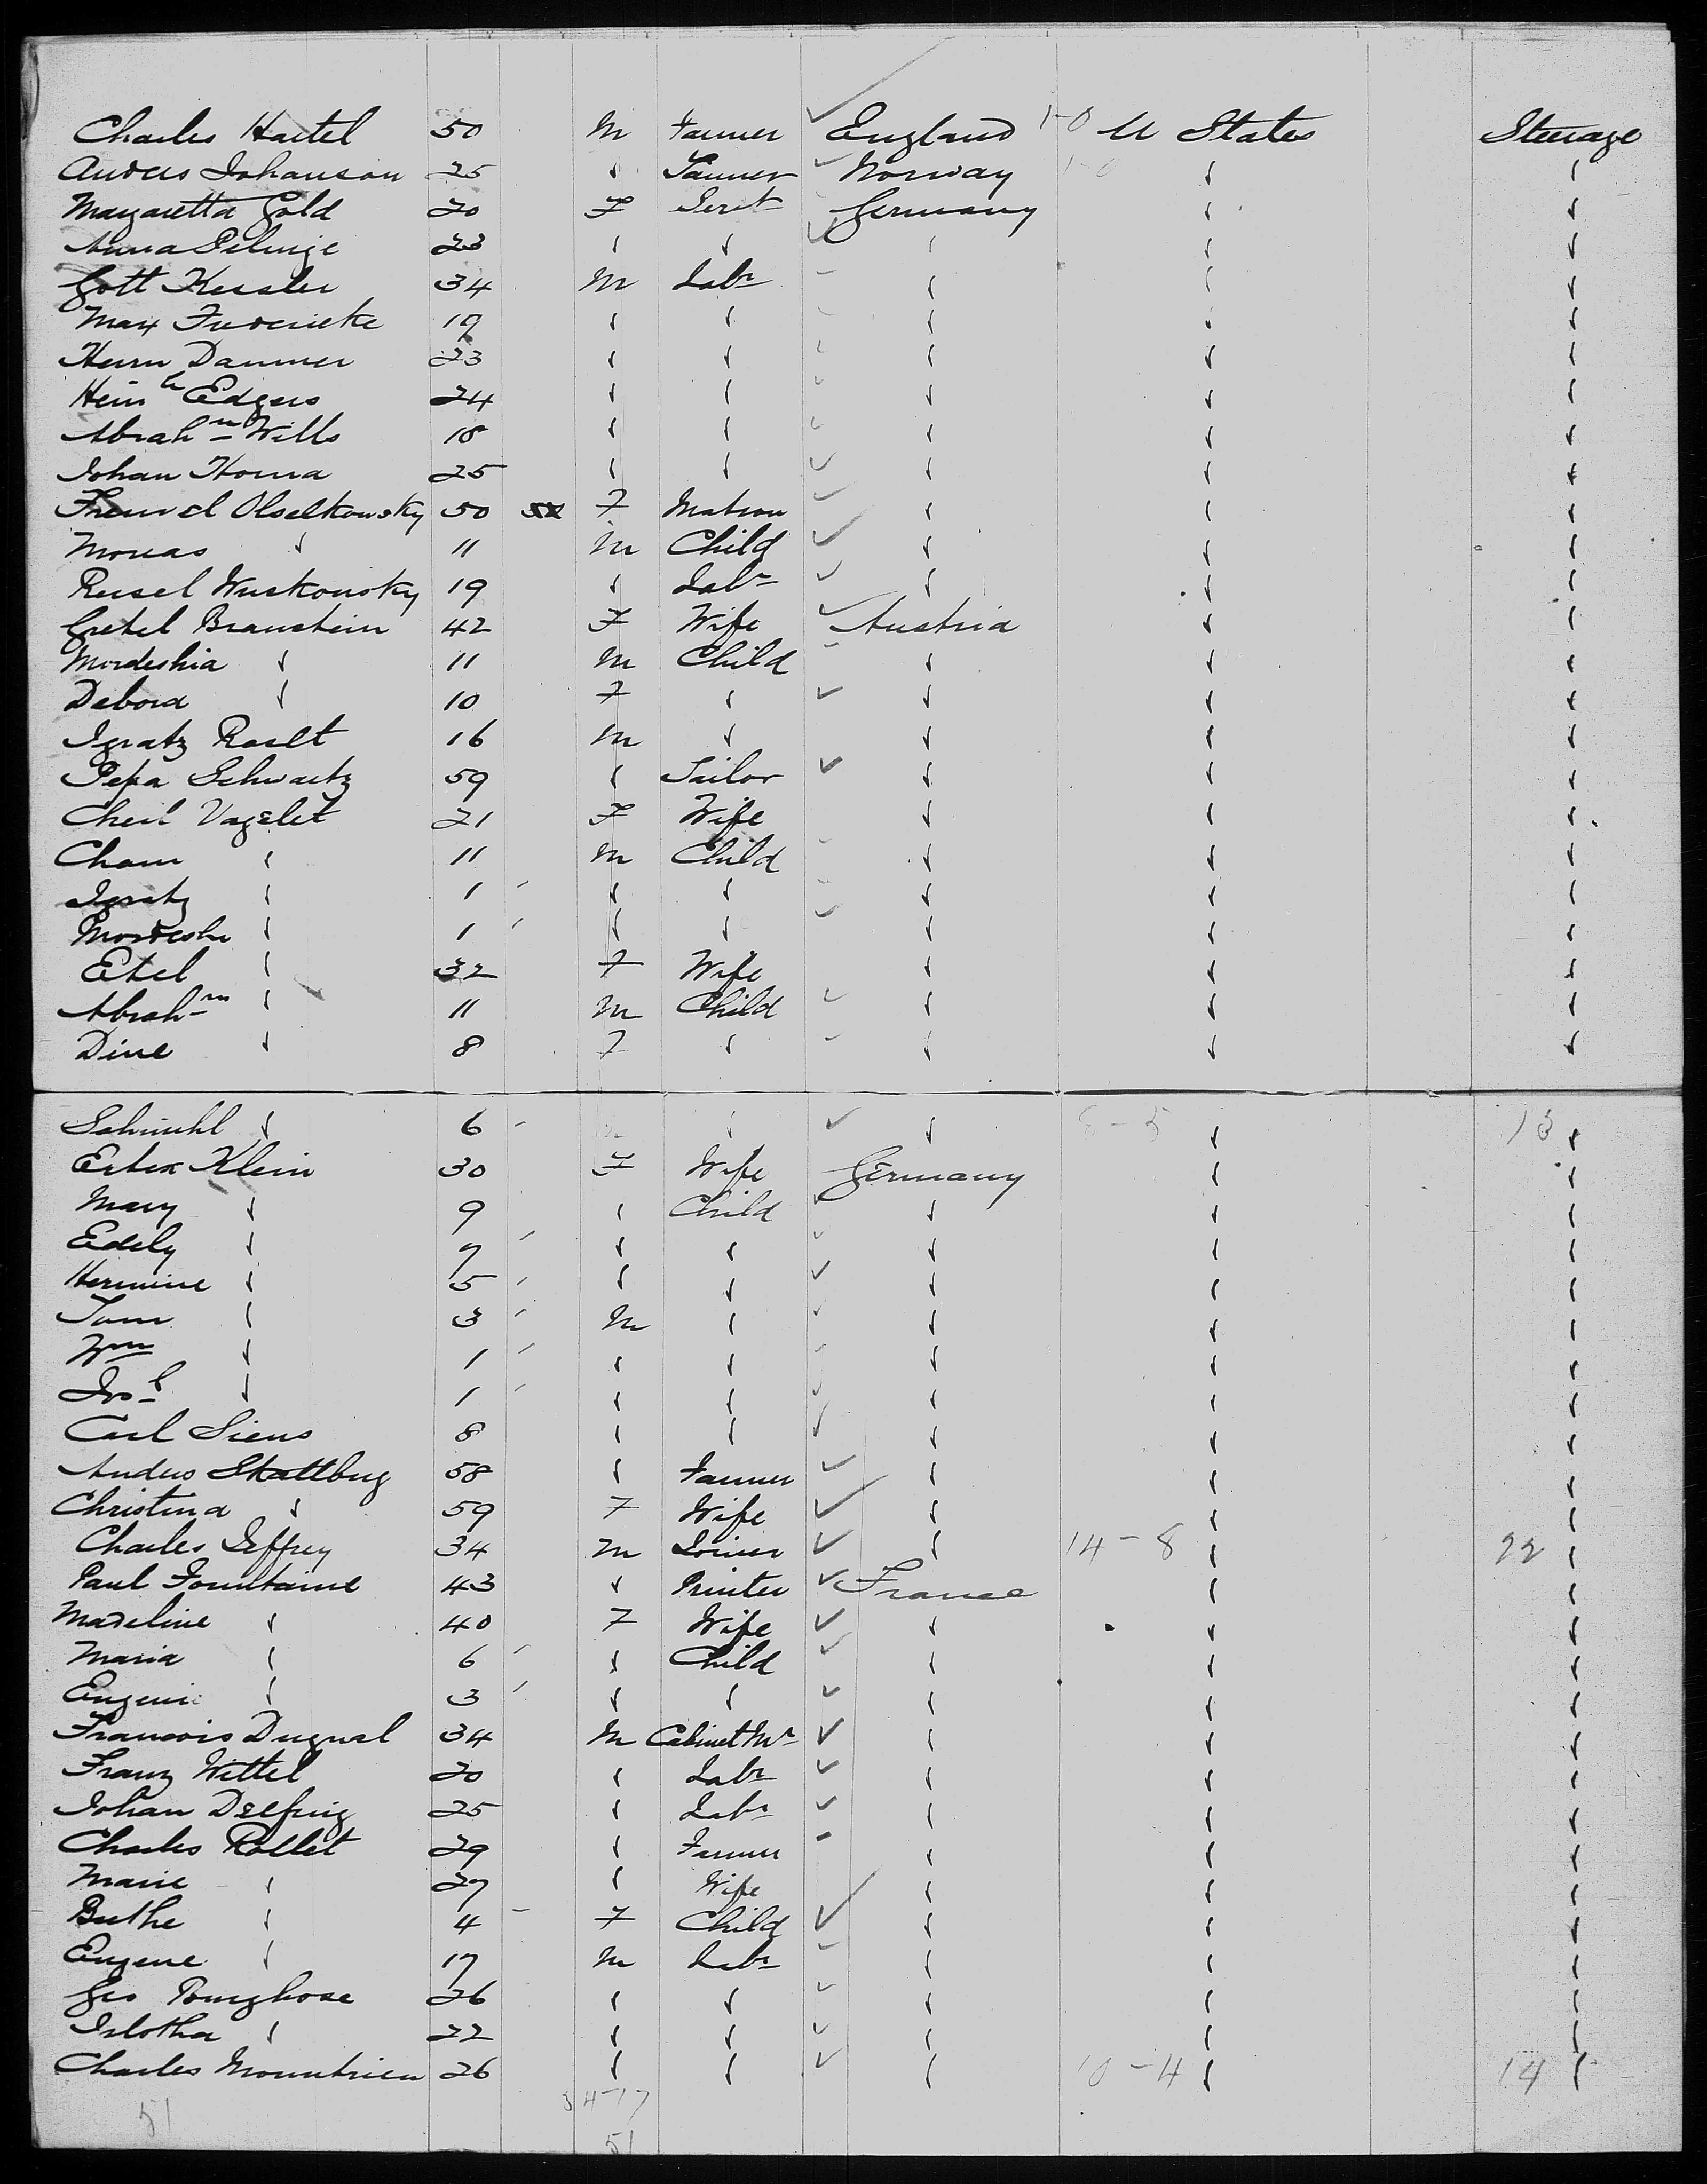 Charles Hartel 50 M Farmer England 1-0 U States Steerage
Anders Johanson 25 " Farmer Norway 1-0 " "
Margaretta Gold 20 F Servt Germany " "
Anna Pelinge 23 " " " " "
Gott Kessler 34 M Labr " " "
Max Fredericke 19 " " " " "
Herm Dammer 23 " " " " "
Heinh Edgers 24 " " " " "
Abrahm Wills 18 " " " " "
Johan Homa 25 " " " " "
Olselkowsky 50 F Matron " " "
Moreas " 11 M Child " " "
Reisel Wuskonsky 19 " Labr " " "
Gretel Braunstein 42 F Wife Austria " "
Mordeshia " 11 M Child " " "
Debora " 10 F " " " "
Igratz Raelt 16 M " " " "
Pepa Schwartz 59 " Tailor " " "
Cheil Vagelet 21 F Wife " " "
Cham " 11 M Child " " "
Igratz " 1 " " " " "
Mordeshe " 1 " " " " "
Etel " 32 F Wife " " "
Abrahm " 11 M Child " " "
Dine " 8 F " " " "
Schmuhl " 6 M " " 8-5 " 13 "
Ester Klein 30 F Wife Germany " "
Mary " 9 " Child " " "
Edely " 7 " " " " "
Hermine " 5 " " " " "
Sam " 3 M " " " "
Wm " 1 " " " " "
Josh " 1 " " " " "
Carl Siens 8 " " " " "
Anders Skattburg 58 " Farmer " " "
Christina " 59 F Wife " " "
Charles Jeffrey 34 M Joiner " 14-8 " 22 "
Paul Fountaine 43 " Printer France " "
Madeline " 40 F Wife " " "
Maria " 6 " Child " " "
Eugenie " 3 " " " " "
Francois Dugnal 34 M Cabinet Mr " " "
Franz Wittel 20 " Labr " " "
Johan Delfing 25 " Labr " " "
Charles Rollet 29 " Farmer " " "
Marie " 27 " Wife " " "
Berthe " 4 F Child " " "
Eugene " 17 M Labr " " "
Geo 26 " " " " "
Islotha " 22 " " " " "
Charles Mountrien 26 " " " 10-4 " 14 "
51 34-17
51